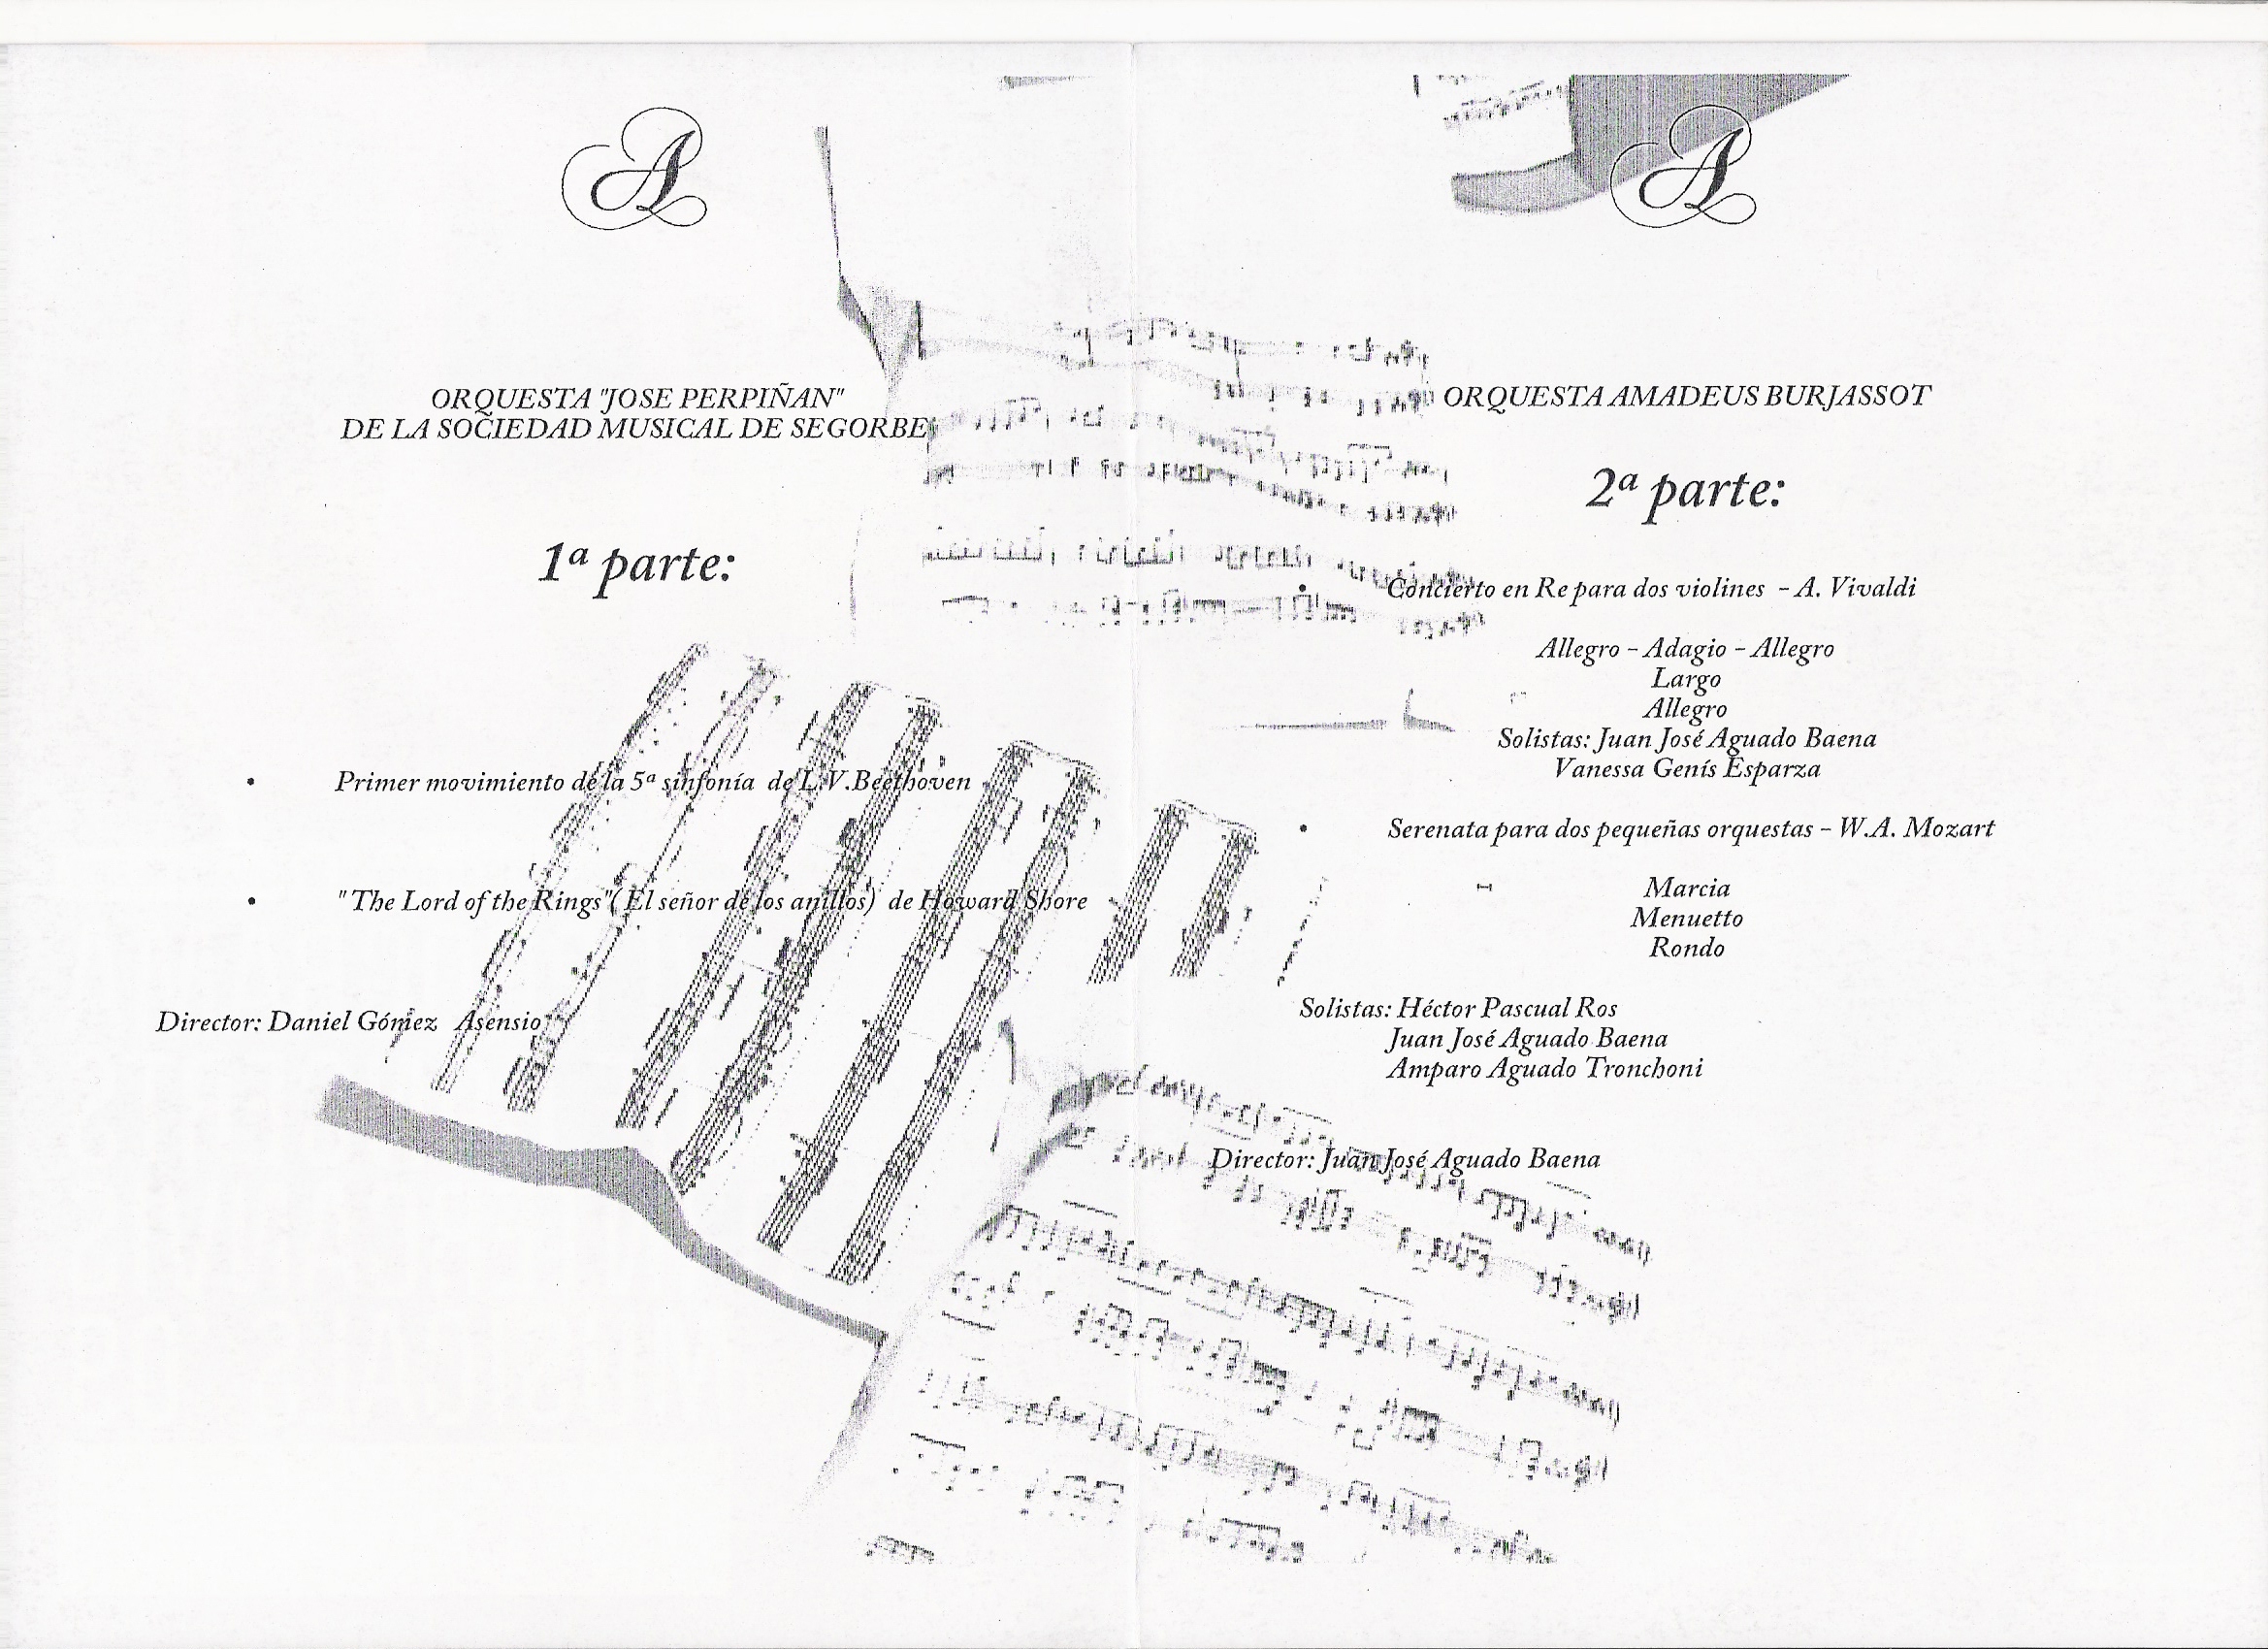 A
ORQUESTA "JOSE PERPIÑAN"
DE LA SOCIEDAD MUSICAL DE SEGORBE
1ª parte:
• Primer movimiento de la 5ª sinfonía de L.V.Beethoven
• "The Lord of the Rings"( El señor de los anillos) de Howard Shore
Director: Daniel Gómez Asensio
A
ORQUESTA AMADEUS BURJASSOT
2ª parte:
• Concierto en Re para dos violines – A. Vivaldi
Allegro – Adagio – Allegro
Largo
Allegro
Solistas: Juan José Aguado Baena
Vanessa Genís Esparza
• Serenata para dos pequeñas orquestas – W.A. Mozart
Marcia
Menuetto
Rondo
Solistas: Héctor Pascual Ros
Juan José Aguado Baena
Amparo Aguado Tronchoni
Director: Juan José Aguado Baena